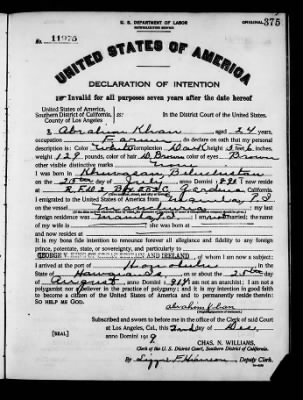 U. S. DEPARTMENT OF LABOR
NATURALIZATION SERVICE
ORIGINAL 375
No. 11975
UNITED STATES OF AMERICA
DECLARATION OF INTENTION
Invalid for all purposes seven years after the date hereof
United States of America,
Southern District of California, ss:
County of Los Angeles
In the District Court of the United States.
I, Abraham Khan, aged 24 years,
occupation Farmer, do declare on oath that my personal
description is: Color White, complexion Dark, height 5 feet 6 inches,
weight 129 pounds, color of hair D. Brown, color of eyes Brown
other visible distinctive marks None
I was born in Beluchistan
on the day of July, anno Domini 1; I now reside
at R.F.D. 2 Box Gardena, California.
I emigrated to the United States of America from
on the vessel; my last
foreign residence was; I am married; the name
of my wife is; she was born at
and now resides at
It is my bona fide intention to renounce forever all allegiance and fidelity to any foreign
prince, potentate, state, or sovereignty, and particularly to
GEORGE V AND IRELAND
I arrived at the port of Honolulu, in the
State of Hawaiian Is, on or about the day
of August, anno Domini 1; I am not an anarchist; I am not a
polygamist nor a believer in the practice of polygamy; and it is my intention in good faith
to become a citizen of the United States of America and to permanently reside therein:
SO HELP ME GOD.
abrahim khan
Subscribed and sworn to before me in the office of the Clerk of said Court
at Los Angeles, Cal., this 2nd day of Dec.
anno Domini 1919
[SEAL]
CHAS. N. WILLIAMS,
Clerk of the U. S. District Court, Southern District of California.
By, Deputy Clerk.